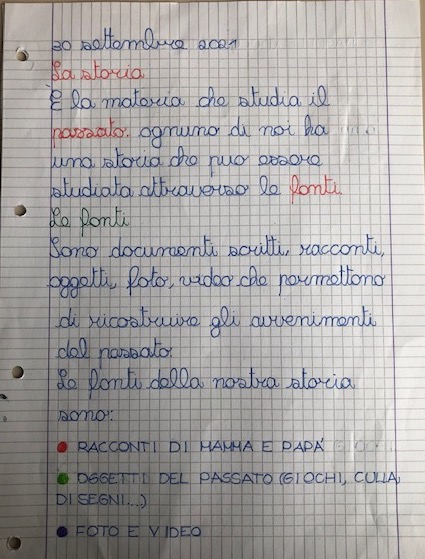 30 settembre 2021
La storia
È la materia che studia il
passato. ognuno di noi ha
una storia che può essere
studiata attraverso le fonti
Le fonti
Sono documenti scritti, racconti,
oggetti, foto, video che permettono
di ricostruire gli avvenimenti
del passato.
Le fonti della nostra storia
sono:
● RACCONTI DI MAMMA E PAPÀ
● OGGETTI DEL PASSATO (GIOCHI, CULLA,
DISEGNI...)
● FOTO E VIDEO